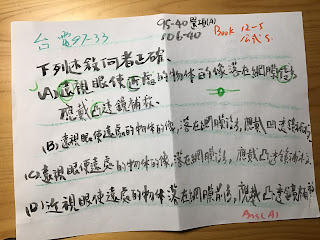 台電97-33
95-40 置頂(A)
106-40
Book 12-5
公式5.
下列述敘何者正確、
(A)遠視眼使近處的物体的像落在網膜後,
應戴凸透鏡補救.
(B)遠視眼使遠處的物体的像,落在網膜後,應戴凹透鏡補救
(C)遠視眼使遠處的物体的像,落在網膜後,應戴凸透鏡補救.
(D)近視眼使遠處的物体落在網膜前後,應戴凸透鏡補
Ans(A)